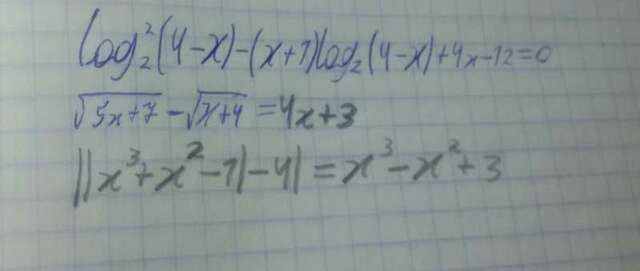 log₂²(4-x)-(x+1)log₂(4-x)+4x-12=0
√(5x+7) - √(x+4) = 4x+3
||x³+x²-1|-4| = x³-x²+3